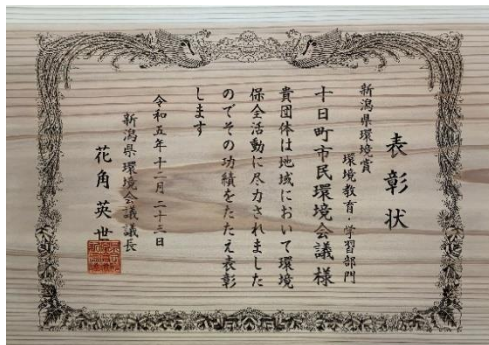 表彰状
新潟県環境賞
環境教育・学習部門
十日町市民環境会議様
貴団体は地域において環境
保全活動に尽力されました
のでその功績をたたえ表彰
します
令和五年十二月二十三日
新潟県環境会議議長
花角英世